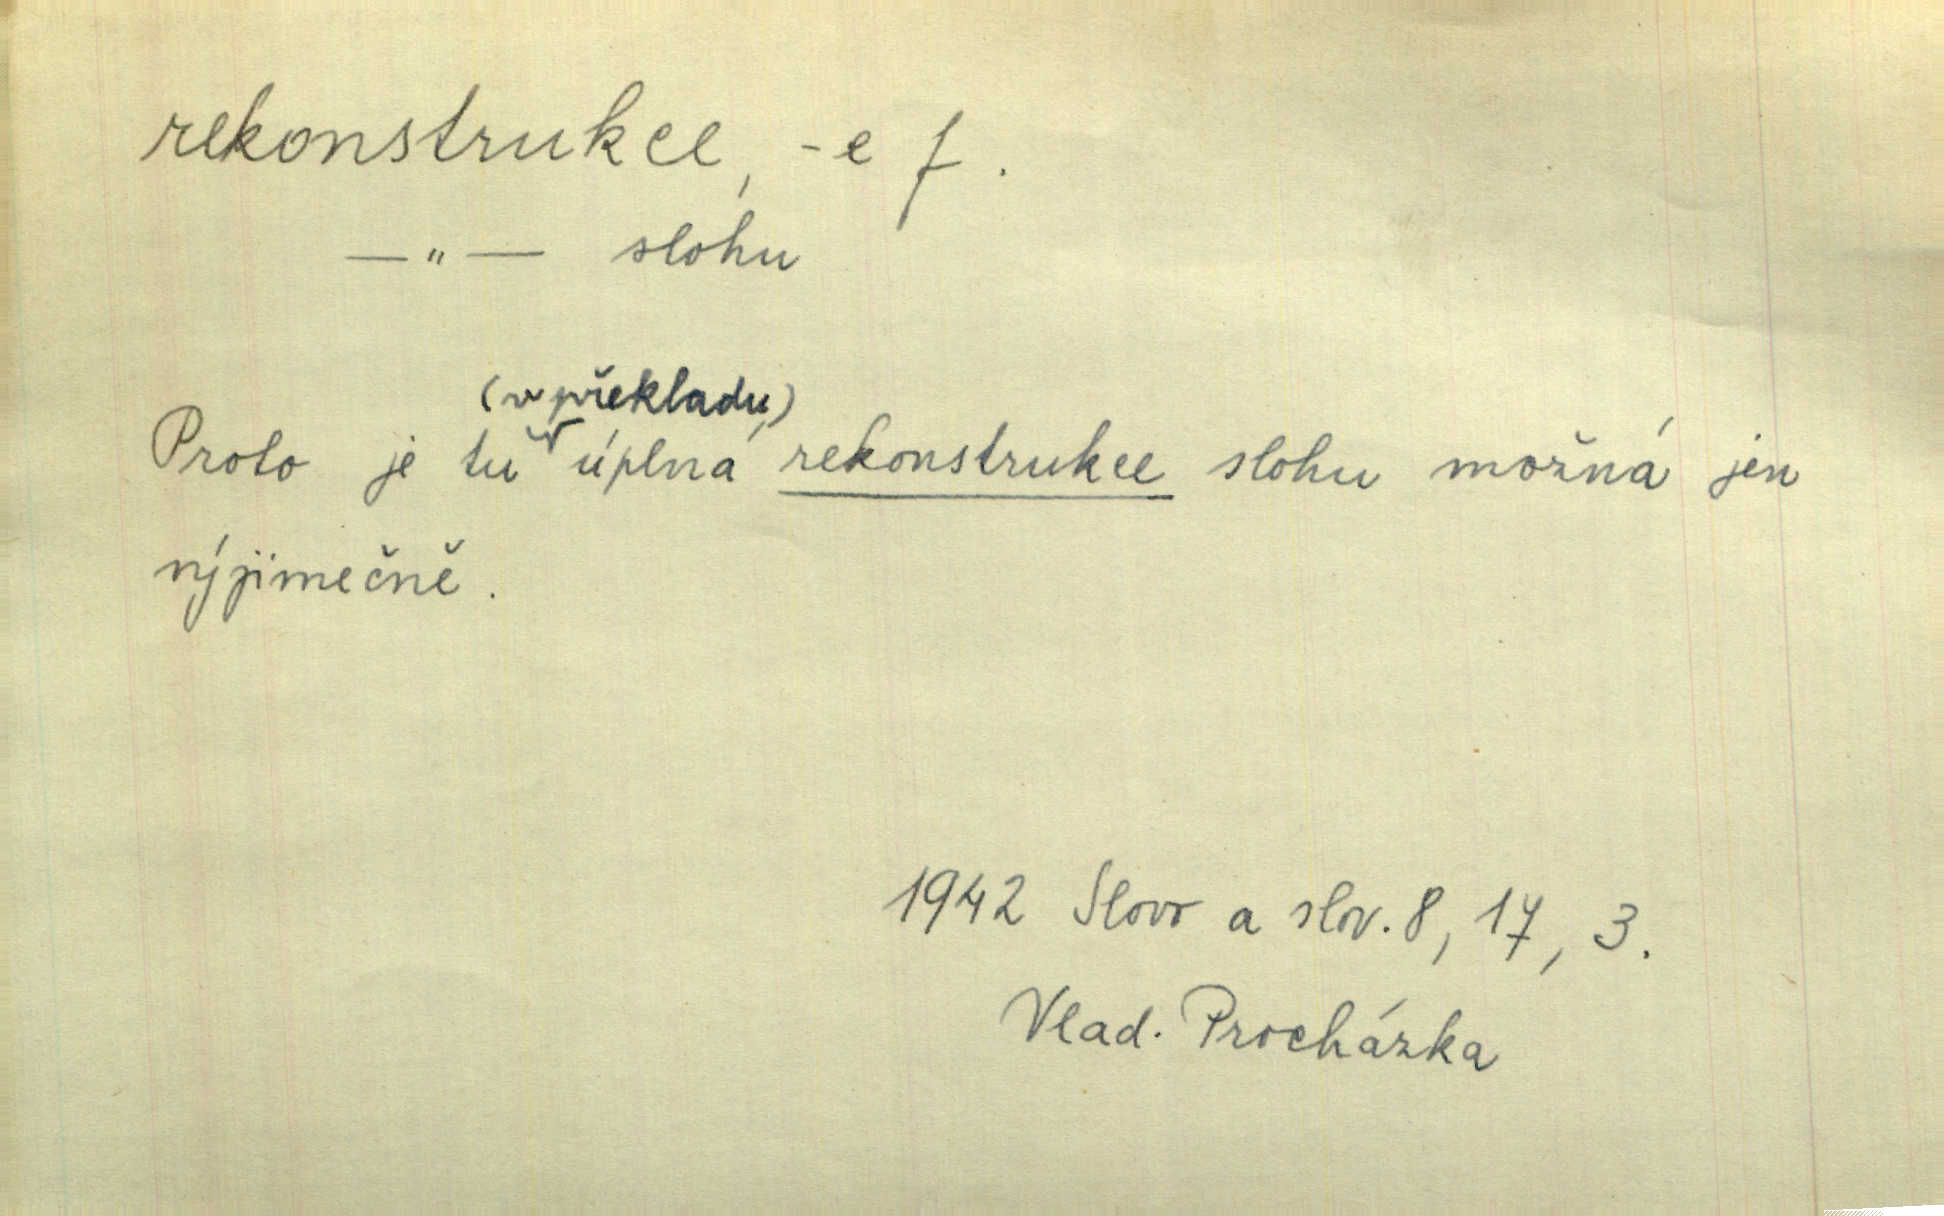 rekonstrukce, -e f.
—"— slohu
(v překladu)
Proto je tu úplná rekonstrukce slohu možná jen
výjimečně.
1942 Slovo a slov. 8, 17, 3.
Vlad. Procházka